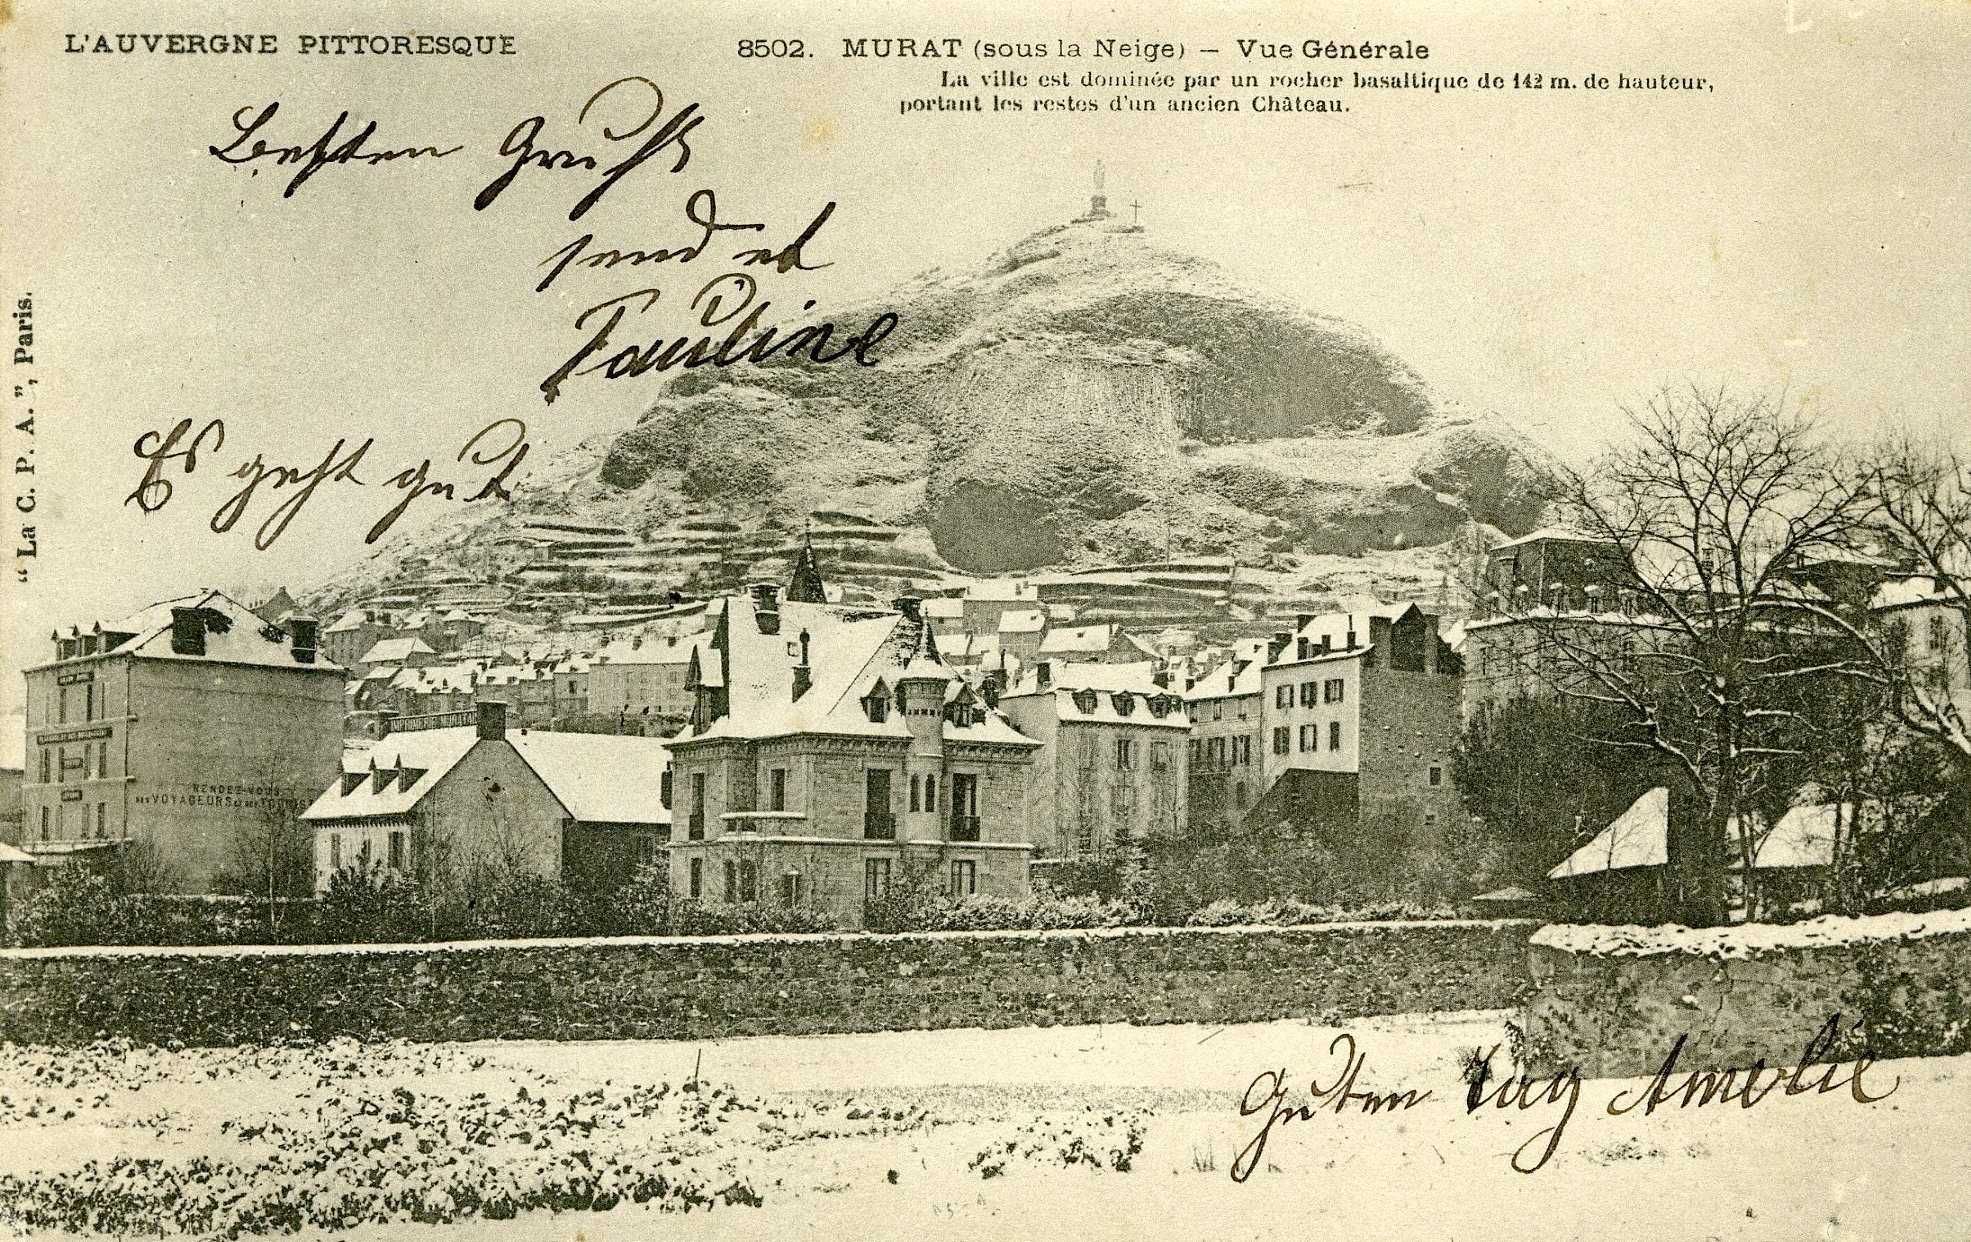 L'AUVERGNE PITTORESQUE
8502. MURAT (sous la Neige) — Vue Générale
La ville est dominée par un rocher basaltique de 142 m. de hauteur,
portant les restes d'un ancien Château.
Besten Gruß
sendet
Pauline
Es geht gut
"La C. P. A.", Paris.
IMPRIMERIE MURATAISE
RENDEZ-VOUS
DES VOYAGEURS ET DES TOURISTES
Guten Tag Amelie